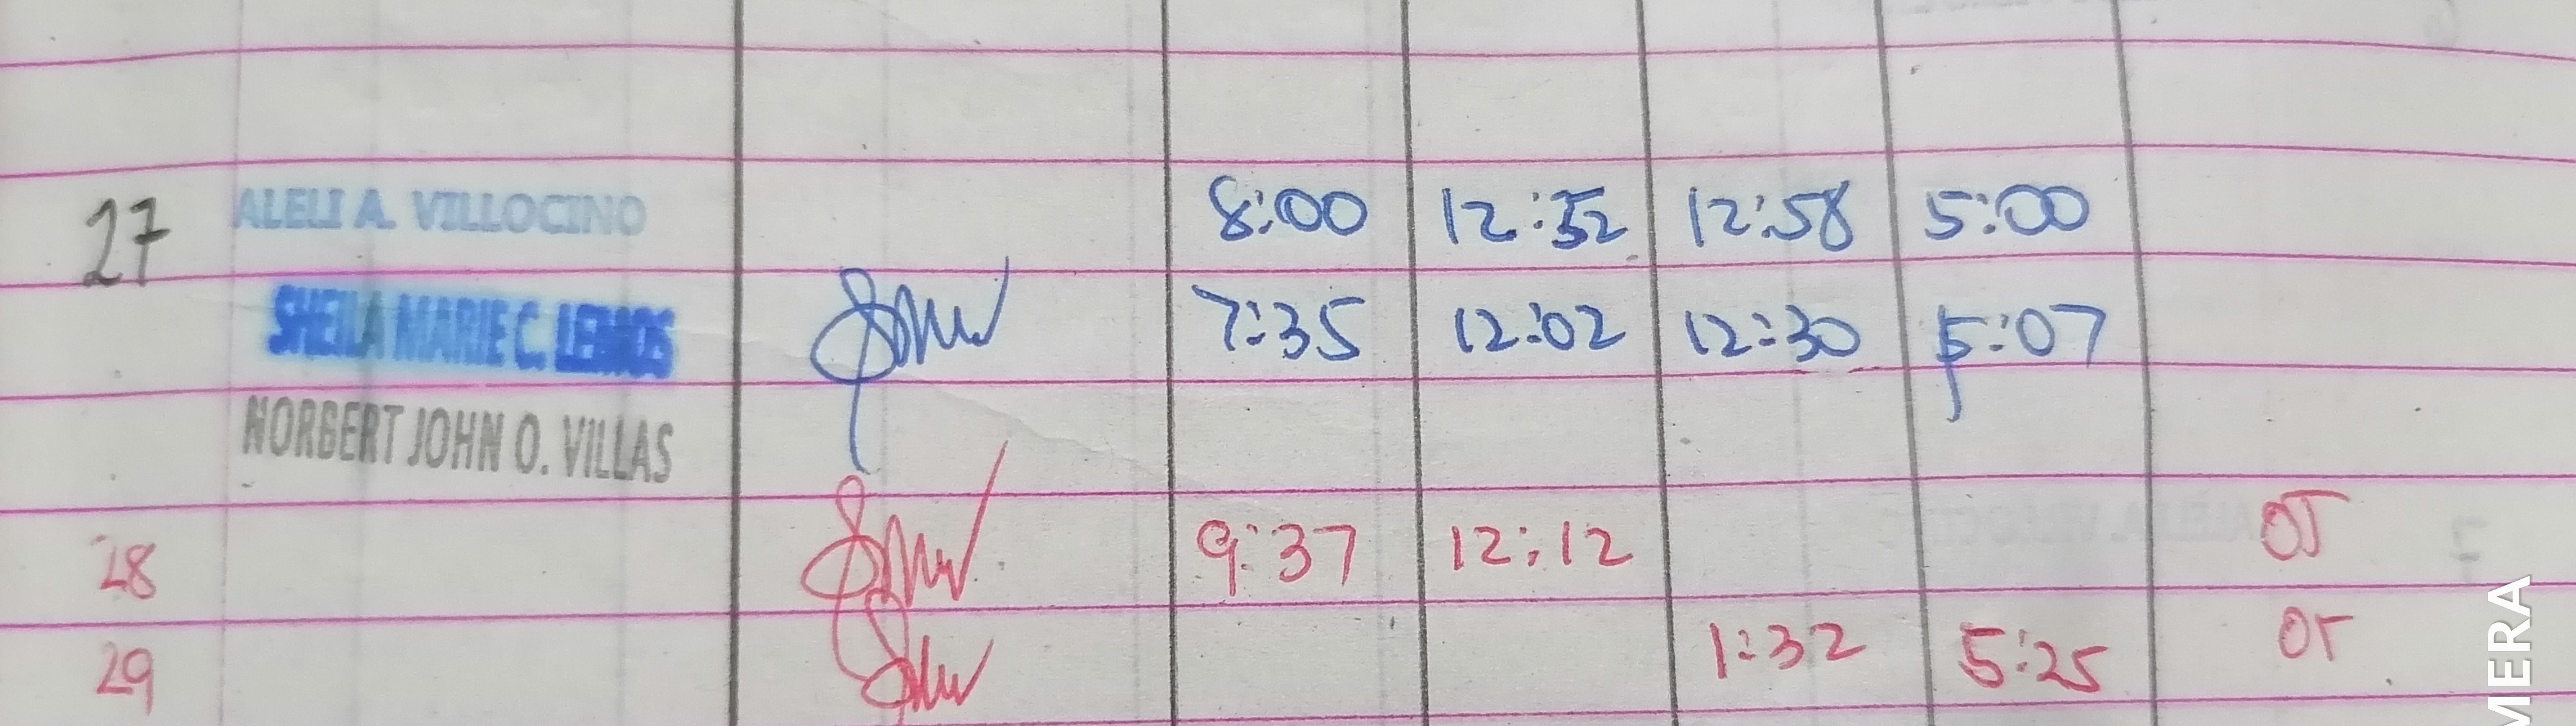 27 ALELI A. VILLOCINO 8:00 12:52 12:58 5:00
SHEILA MARIE C. LEMOS 7:35 12:02 12:30 5:07
NORBERT JOHN O. VILLAS
28 9:37 12:12 OT
29 1:32 5:25 OT
MERA